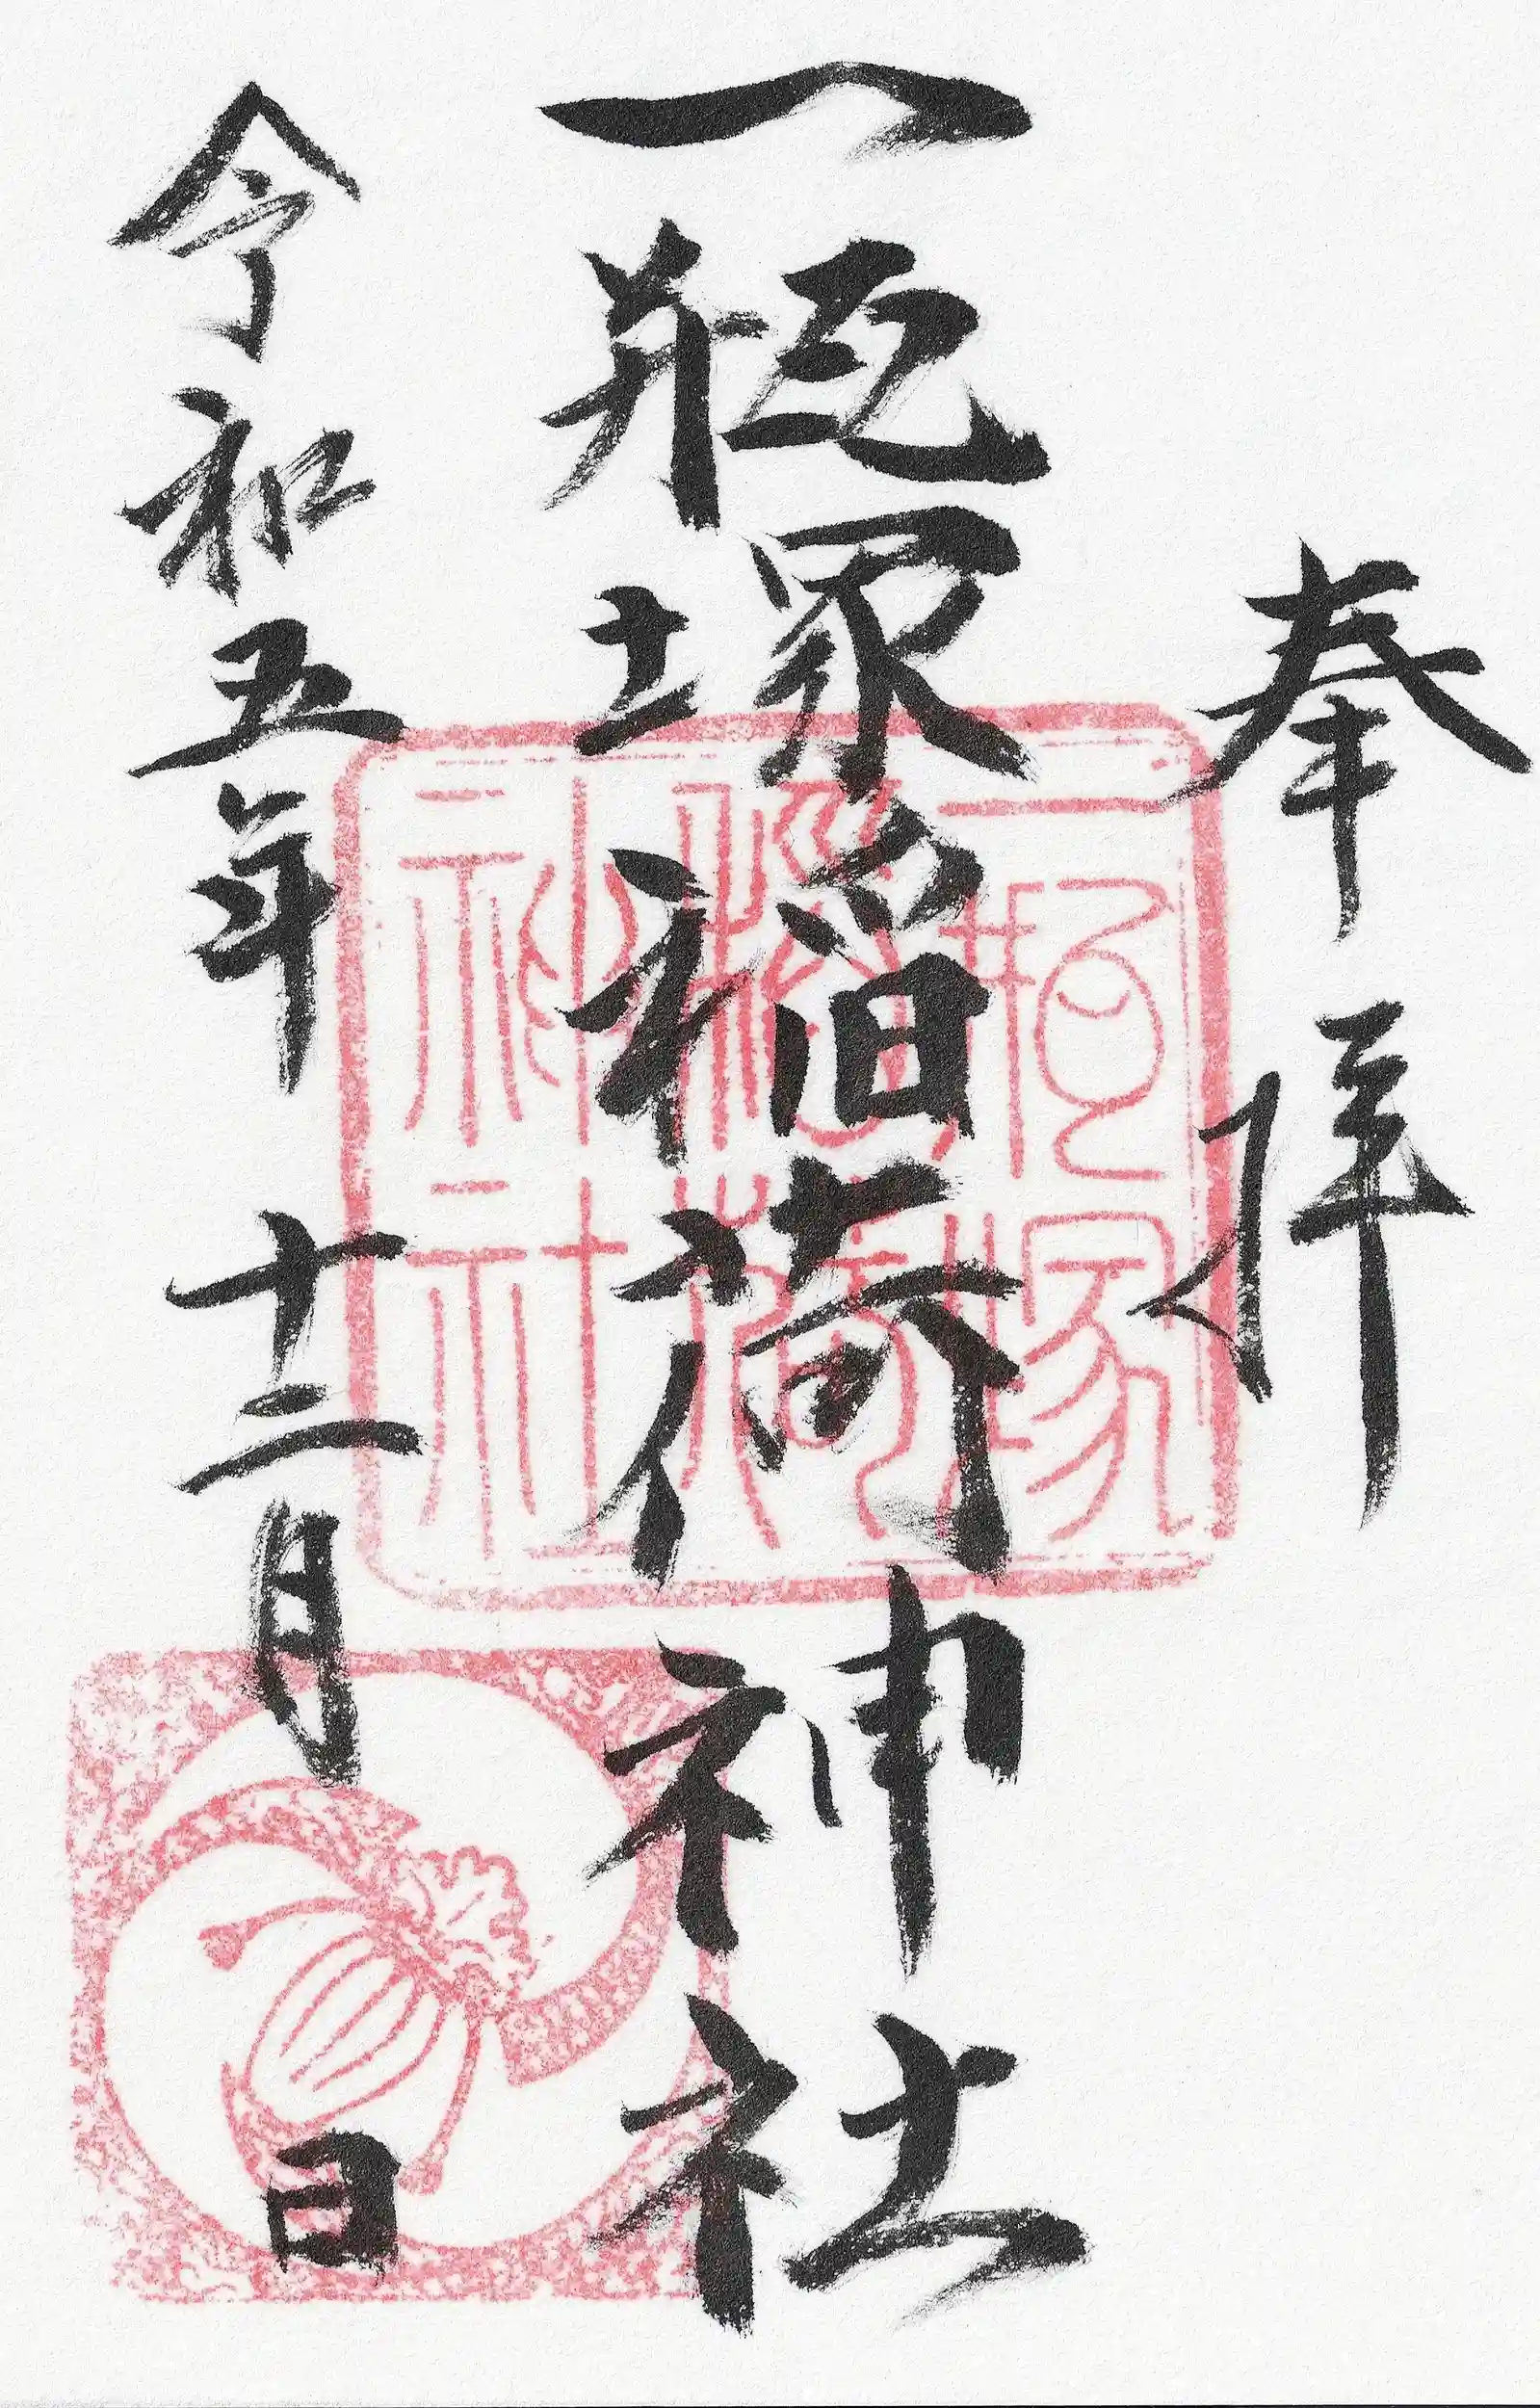 奉拝
一瓶塚稲荷神社
令和五年十二月 日
一瓶塚稲荷神社